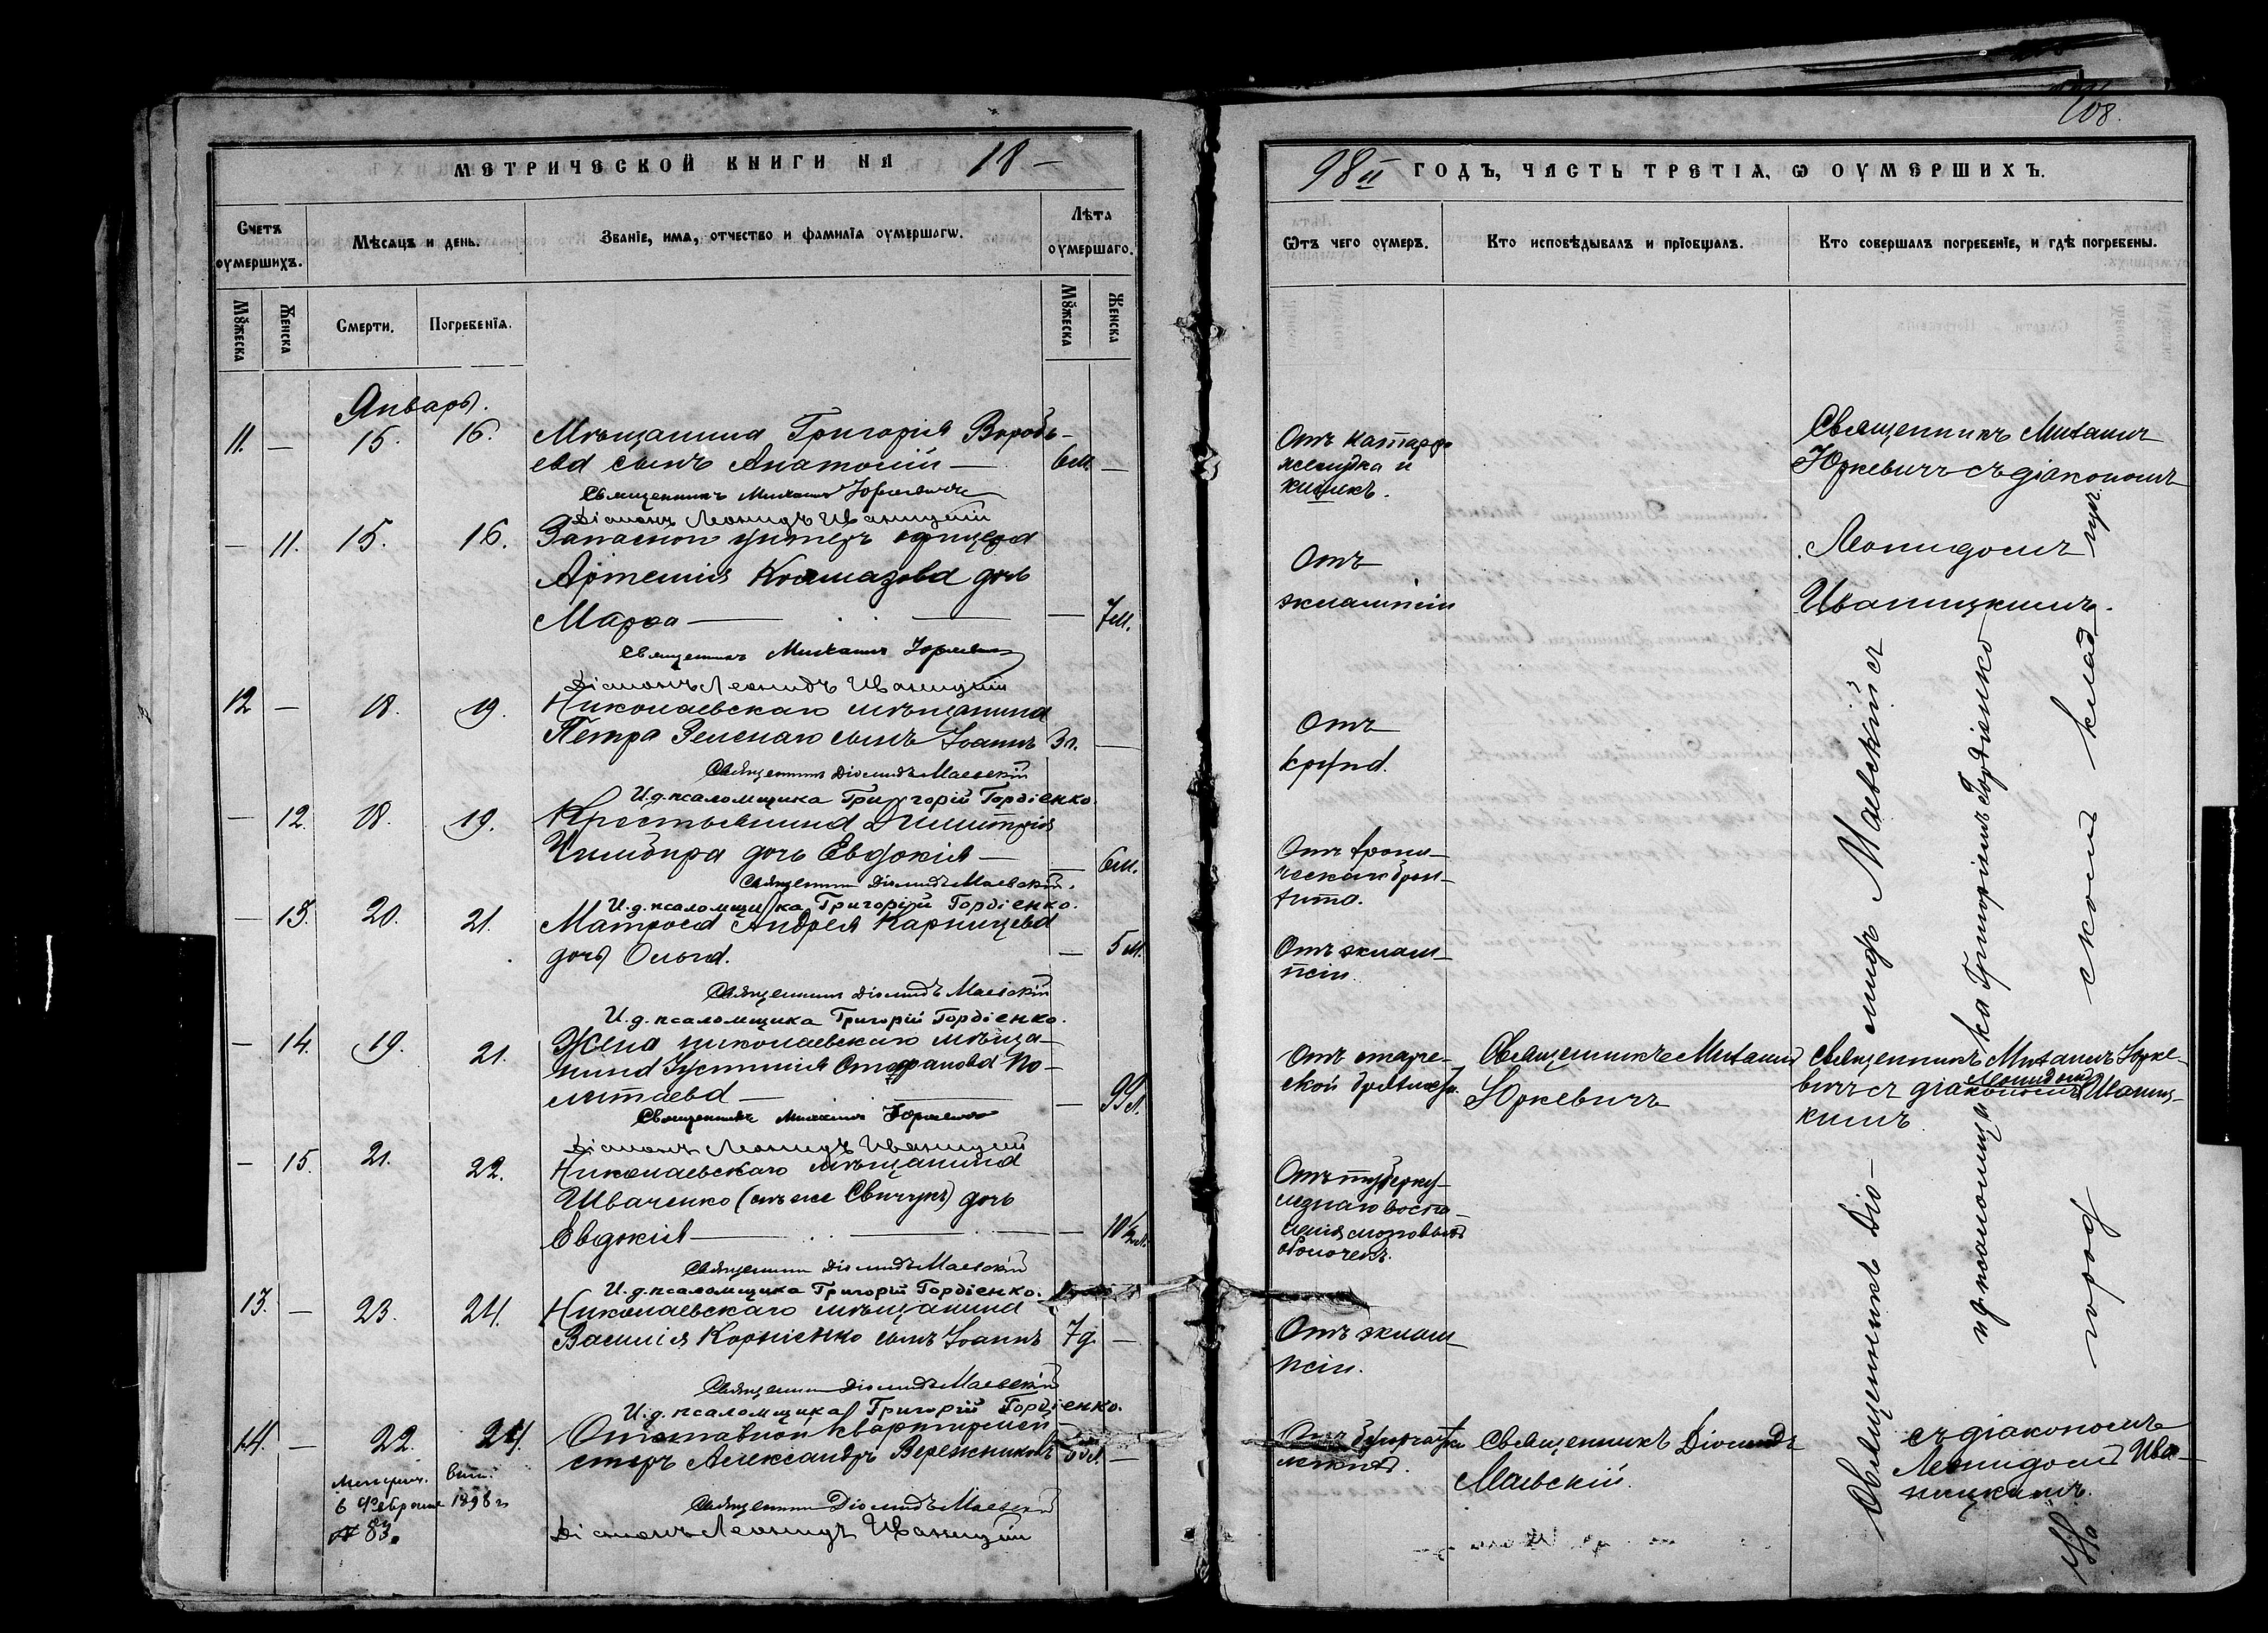 108.
МЕТРИЧЕСКОЙ КНИГИ НА 18 —
98 й ГОДЪ, ЧАСТЬ ТРЕТІЯ, Ѡ ОУМЕРШИХЪ.
Счетъ оумершихъ.
Мѣсяцъ и день.
Званіе, имя, отчество и фамилія оумершагѡ.
Лѣта оумершаго.
Мꙋжеска
Женска
Смерти.
Погребенїя.
Мꙋжеска
Женска
Ѿтъ чего оумеръ.
Кто исповѣдывалъ и прїобщалъ.
Кто совершалъ погребенїе, и гдѣ погребены.
Январь.
11. — 15. 16. Мѣщанина Григорія Воробь-
ева сынъ Анатолій — 6м. —
Священникъ Михаилъ Юркевичъ
Діаконъ Леонидъ Иваницкій
Отъ катарра
желудка и
кишекъ.
Священникъ Михаилъ
Юркевичъ съ діакономъ
Леонидомъ
Иваницкимъ.
— 11. 15. 16. Запасного унтеръ офицера
Артемія дочь
Марѳа — — 7м.
Священникъ Михаилъ Юркевичъ
Діаконъ Леонидъ Иваницкій
Отъ
эклампсіи
12 — 18. 19. Николаевскаго мѣщанина
Петра Зеленаго сынъ Іоаннъ 3л. —
Священникъ Діомидъ Маевскій
И.д. псаломщика Григорій Гордіенко.
Отъ
крупа.
— 12. 18. 19. Крестьянина Димитрія
Чимбира дочь Евдокія — — 6м.
Священникъ Діомидъ Маевскій.
И.д. псаломщика Григорій Гордіенко.
Отъ хрони-
ческаго брон-
хита.
— 13. 20. 21. Матроса Андрея Карпицева
дочь Ольга. — 5м.
Священникъ Діомидъ Маевскій
И.д. псаломщика Григорій Гордіенко.
Отъ эклам-
псіи.
— 14. 19. 21. Жена николаевскаго мѣща-
нина Іустинія Стефанова По-
летаева — — 99л.
Священникъ Михаилъ Юркевичъ
Діаконъ Леонидъ Иваницкій
Отъ старче-
ской дряхлости.
Священникъ Михаилъ
Юркевичъ
Священникъ Михаилъ Юрке-
вичъ съ діакономъ Леонидомъ Иваниц-
кимъ.
— 15. 21. 22. Николаевскаго мѣщанина
Иваченко (онъ же Свичукъ) дочь
Евдокія — — 10½м.
Священникъ Діомидъ Маевскій
И.д. псаломщика Григорій Гордіенко.
Отъ туберку-
лезнаго воспа-
ленія мозговыхъ
оболочекъ.
13. — 23. 24. Николаевскаго мѣщанина
Василія Корніенко сынъ Іоаннъ 7д. —
Священникъ Діомидъ Маевскій
И.д. псаломщика Григорій Гордіенко.
Отъ эклам-
псіи.
Священникъ Діо-
мидъ Маевскій съ
и.д. псаломщика Григоріемъ Гордіенко
14. — 22. 24. Отставной квартирмей-
стеръ Александръ Вережниковъ —
Священникъ Діомидъ Маевскій
Діаконъ Леонидъ Иваницкій
вып.
в Феврале 1898 г
№ 83.
Священникъ Діомидъ
Маевскій.
съ діакономъ
Леонидомъ Ива-
ницкимъ.
На
город
скомъ клад